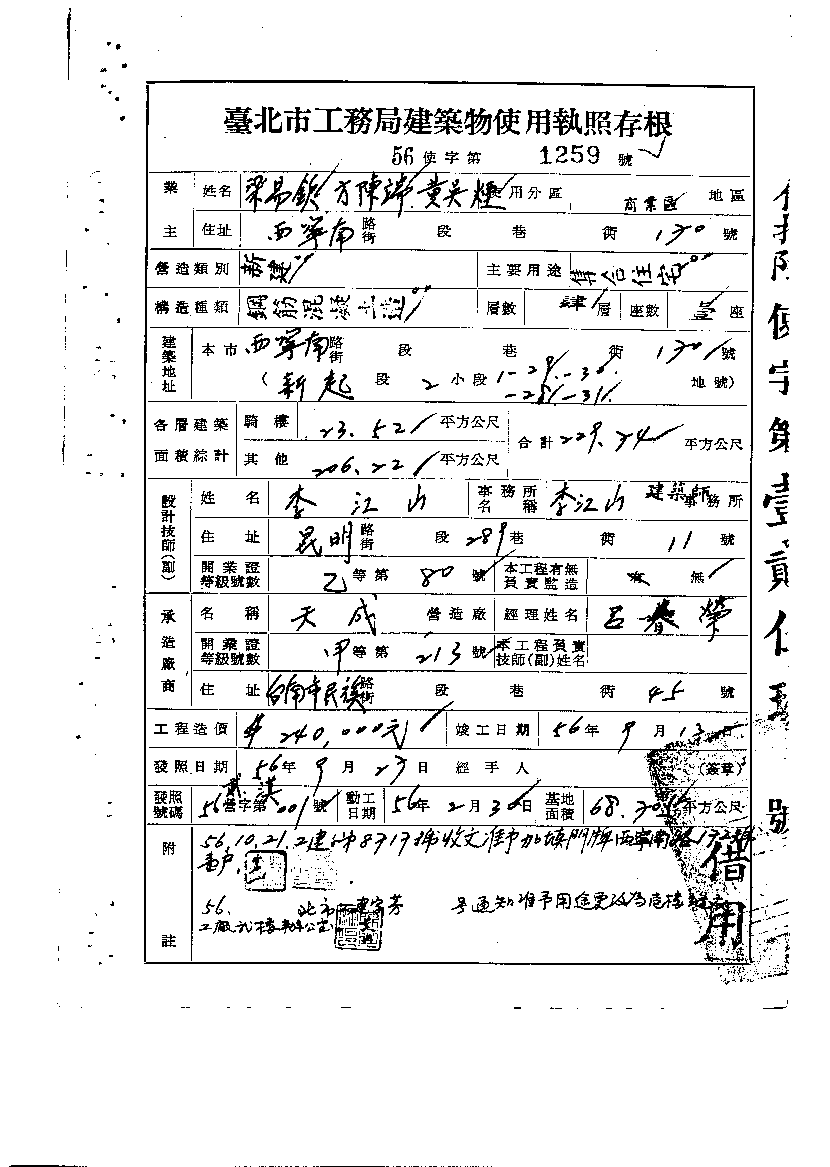 臺北市工務局建築物使用執照存根
56使字第 1259 號
業主 姓名 梁易鋃 方陳 黃吳 使用分區 商業區 地區
住址 西寧南 路街 段 巷 衖 130 號
營造類別 新建 主要用途 集合住宅
構造種類 鋼筋混凝土造 層數 肆 層 座數 座
建築地址 本市 西寧南 路街 段 巷 衖 130 號
(新起 段 2 小段 1-29.-30. -28.-31. 地號)
各層建築面積綜計 騎樓 23.52 平方公尺 合計 229.74 平方公尺
其他 206.22 平方公尺
設計技師(副) 姓名 李江山 事務所名稱 李江山 建築師事務所
住址 昆明 路街 段 289 巷 衖 11 號
開業證等級號數 乙等第 80 號 本工程有無負實監造 無
承造廠商 名稱 天成 營造廠 經理姓名 呂春榮
開業證等級號數 甲等第 213 號 本工程負實技師(副)姓名
住址 台南市民族 路街 段 巷 衖 45 號
工程造價 $240,000元 竣工日期 56年 9月 13日
發照日期 56年 9月 23日 經手人 (簽章)
發照號碼 56營字第 001 號 動工日期 56年 2月 30日 基地面積 68.30 平方公尺
附註 56.10.21.2建 字第8717號收文准予加填門牌西寧南路132號
壹戶.
56. 北市 建字 號通知准予用途更改為 樓
工廠貳樓辦公室
借用
使字第壹貳 號